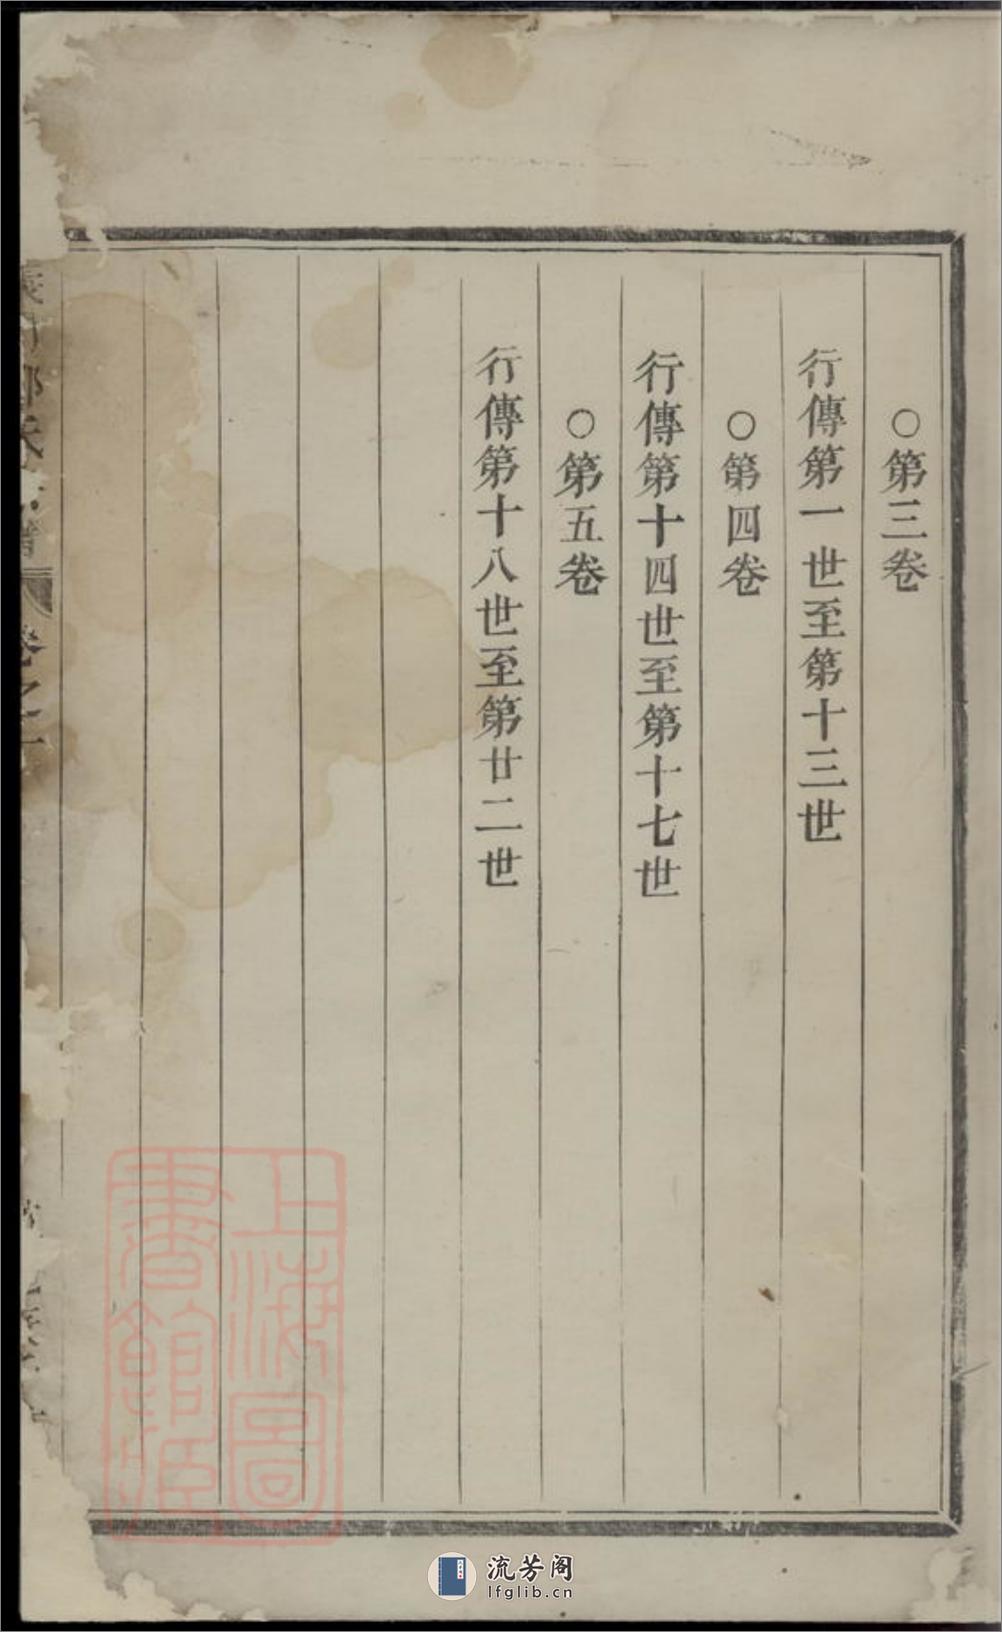 ○第三卷
行傳第一世至第十三世
○第四卷
行傳第十四世至第十七世
○第五卷
行傳第十八世至第廿二世
卷之一
上海圖
書館藏
流芳阁
lfglib.cn